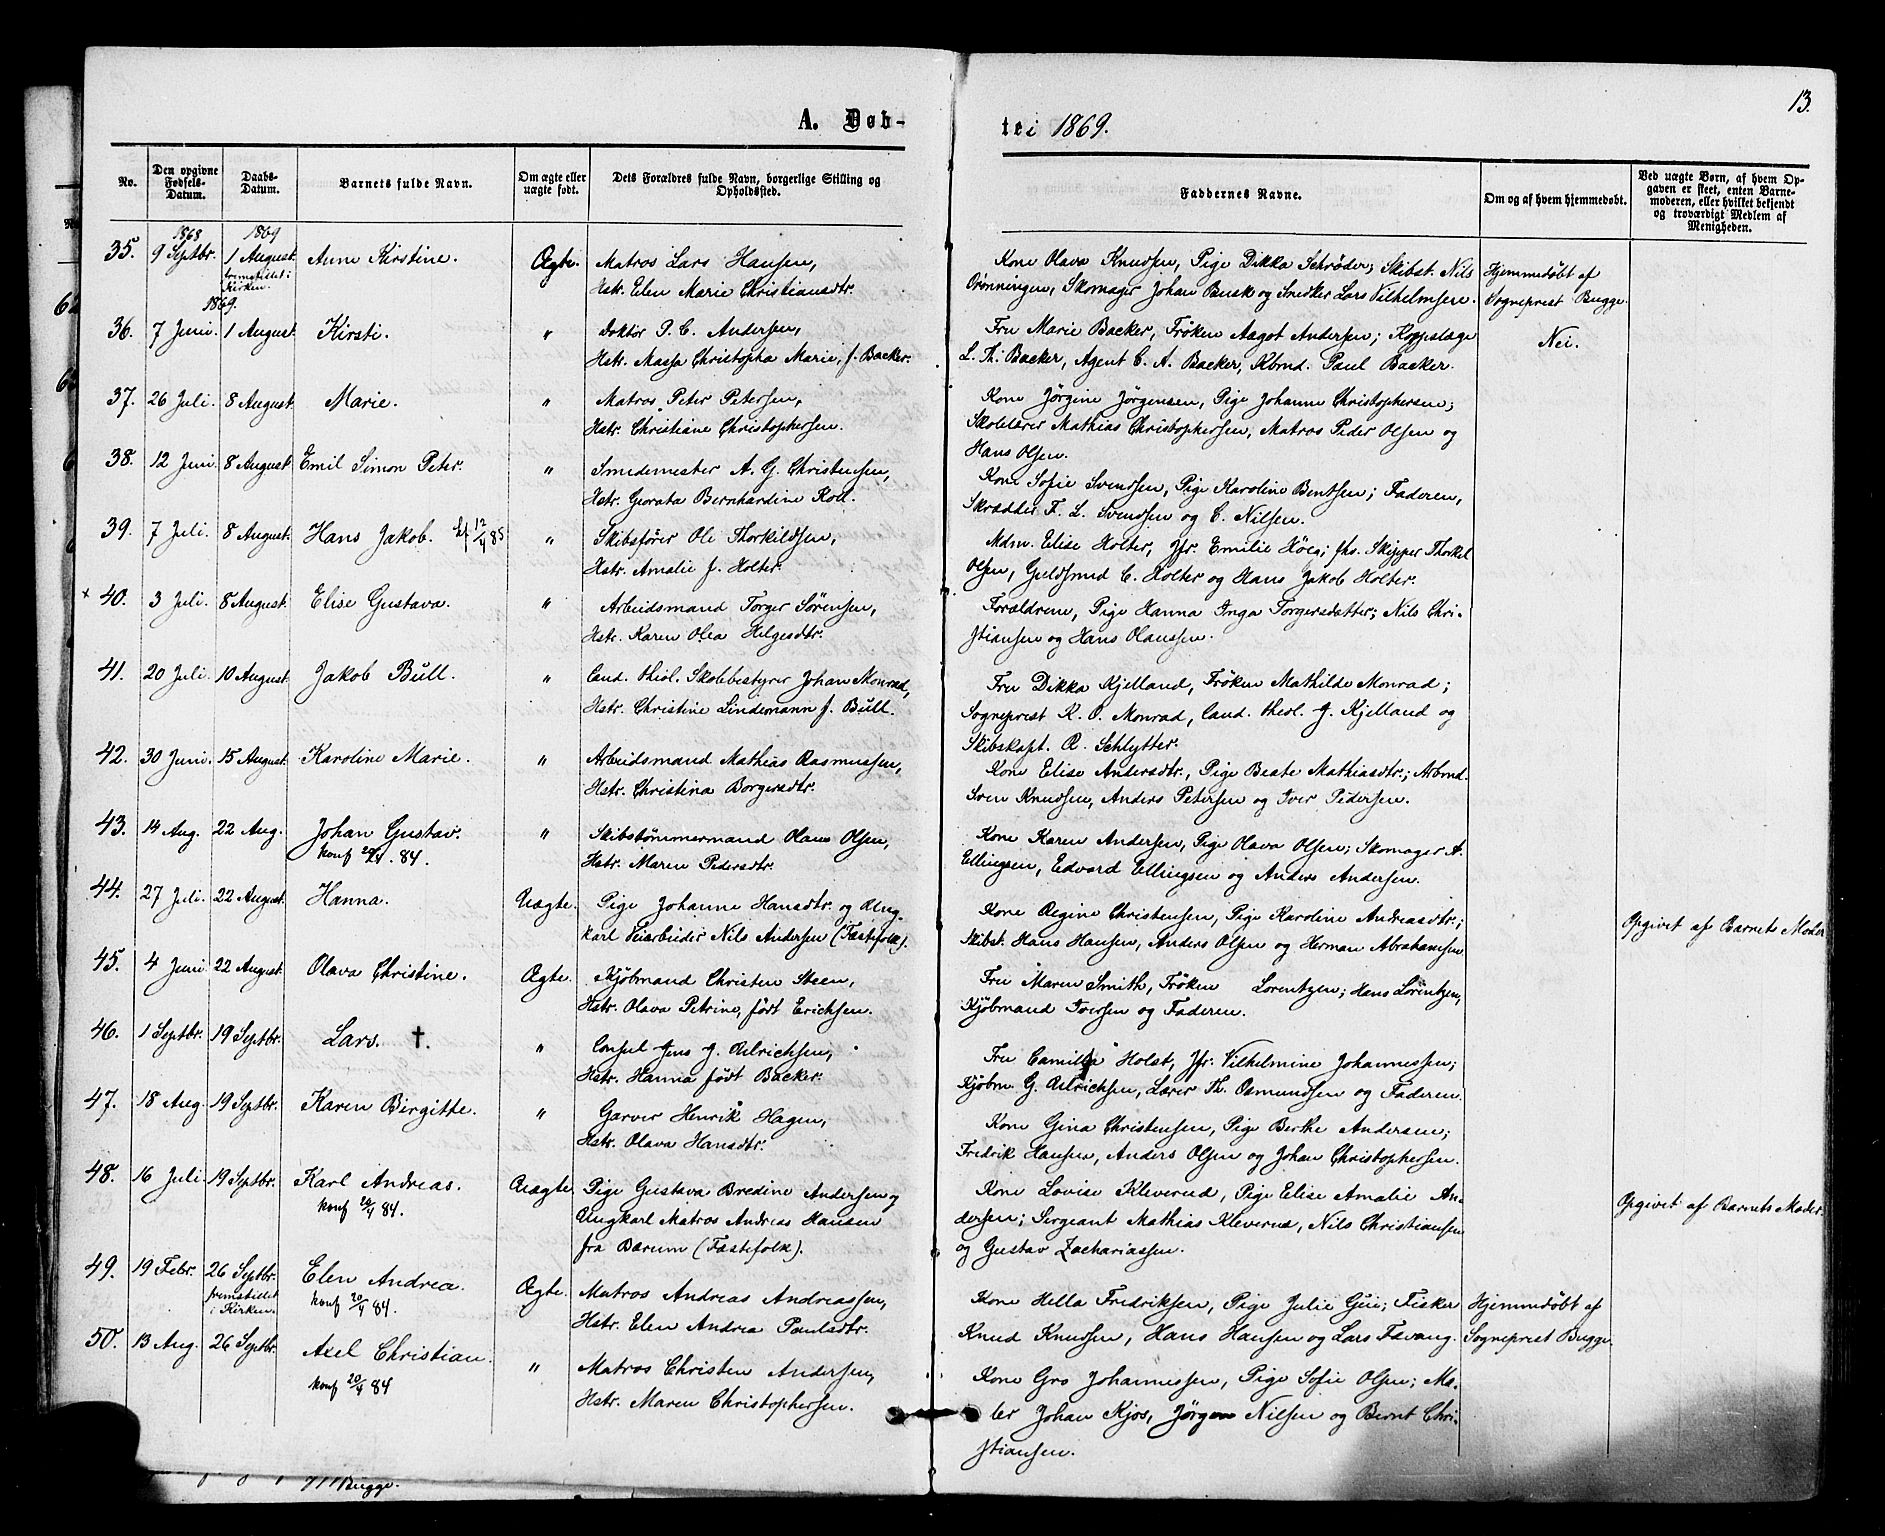 13.
A. Døb-
te i 1869.
No.
Den opgivne Fødsels-Datum.
Daabs-Datum.
Barnets fulde Navn.
Om ægte eller uægte født.
Dets Forældres fulde Navn, borgerlige Stilling og Opholdssted.
Faddernes Navne.
Om og af hvem hjemmedøbt.
Ved uægte Børn, af hvem Opgaven er skeet, enten Barnemoderen, eller hvilket bekjendt og troværdigt Medlem af Menigheden.
1868 1869
35. 9 Septbr. 1 August fremstillet i Kirken. Anne Kirstine. Ægte. Matros Lars Hansen,
Hstr. Elen Marie Christiansdtr.
Kone Olava Knudsen, Pige Dikka Schrøder; Skibst. Nils
Drønningen, Skomager Johan Busk og Snedker Lars Vilhelmsen.
Hjemmedøbt af
Sogneprest Bugge.
1869.
36. 7 Juni. 1 August. Kirsti. " Doktor P. C. Andersen,
Hstr. Massa Christopha Marie, f. Backer.
Fru Marie Backer, Frøken Aagot Andersen;
L. Th. Backer, Agent C. A. Backer, Kbmd. Paul Backer.
Nei.
37. 26 Juli. 8 August. Marie. " Matros Peter Petersen,
Hstr. Christiane Christophersen.
Kone Jørgine Jørgensen, Pige Johanne Christophersen;
Skolelærer Mathias Christophersen, Matros Peder Olsen og
Hans Olsen.
38. 12 Juni. 8 August. Emil Simon Peter. " Smedemester A. G. Christensen,
Hstr. Georata Bernhardine Roll.
Kone Sofie Svendsen, Pige Karoline Bentsen; Faderen,
Skrædder F. L. Svendsen og C. Nilsen.
39. 7 Juli. 8 August. Hans Jakob. 12/4 85 " Skibsfører Ole Thorkildsen,
Hstr. Amalie f. Holter.
Mdm. Elise Holter, Jfr. Emilie Höeg; fhv. Skipper Thorkel
Olsen, Guldsmed C. Holter og Hans Jakob Holter.
x 40. 3 Juli. 8 August. Elise Gustava. " Arbeidsmand Torger Sørensen,
Hstr. Karen Olea Helgesdtr.
Forældrene, Pige Hanna Inga Torgersdatter; Nils Chri-
stiansen og Hans Olaussen.
41. 20 Juli. 10 August. Jakob Bull. " Cand. theol. Skolebestyrer Johan Monrad,
Hstr. Christine Lindemann f. Bull.
Fru Dikka Kjelland, Frøken Mathilde Monrad;
Sogneprest K. O. Monrad, Cand. theol. J. Kjelland og
Skibskapt. R. Schlytter.
42. 30 Juni. 15 August. Karoline Marie. " Arbeidsmand Mathias Rasmussen,
Hstr. Christina Borgersdtr.
Kone Elise Andersdtr., Pige Beate Mathiasdtr.; Arbmd.
Sven Knudsen, Anders Petersen og Iver Pedersen.
43. 14 Aug. 22 Aug. Johan Gustav. " Skibstømmermand Olaus Olsen,
konf 20/4. 84. Hstr. Maren Pedersdtr.
Kone Karen Andersen, Pige Olava Olsen; Skomager A.
Ellingsen, Edvard Ellingsen og Anders Andersen.
44. 27 Juli. 22 August. Hanna. Uægte. Pige Johanne Hansdtr. og Ung-
karl Teiarbeider Nils Andersen (Fæstefolk).
Kone Regine Christensen, Pige Karoline Andreasdtr.;
Skibst. Hans Hansen, Anders Olsen og Herman Abrahamsen
Opgivet af Barnets Moder
45. 4 Juni 22 August. Olava Christine. Ægte. Kjøbmand Christen Steen,
Hstr. Olava Petrine, født Erichsen.
Fru Maren Smith, Frøken Lorentzen; Hans Lorentzen,
Kjøbmand Iversen og Faderen.
46. 1 Septbr. 19 Septbr. Lars. † " Consul Jens J. Ulrichsen,
Hstr. Hanna født Backer.
Fru Camilla Holst, Jfr. Vilhelmine Johannessen;
Kjøbm. G. Ulrichsen, Lærer Th. Osmundsen og Faderen.
47. 18 Aug. 19 Septbr. Karen Birgitte. " Garver Henrik Hagen,
Hstr. Olava Hansdtr.
Kone Gina Christensen, Pige Berthe Andersen;
Fredrik Hansen, Anders Olsen og Johan Christophersen.
48. 16 Juli 19 Septbr. Karl Andreas. Uægte. Pige Gustava Bredine Andersen og
konf 20/4 84. Ungkarl Matros Andreas Hansen
fra Bærum (Fæstefolk).
Kone Lovise Kleverud, Pige Elise Amalie An-
dersen; Sergeant Mathias Kleverud, Nils Christiansen
og Gustav Zachariassen.
Opgivet af Barnets Moder.
49. 19 Febr. 26 Septbr. fremstillet i Kirken. Elen Andrea. Ægte. Matros Andreas Andreassen,
konf 20/4 84. Hstr. Elen Andrea Paulsdtr.
Kone Hella Fredriksen, Pige Julie Gui; Fisker
Knud Knudsen, Hans Hansen og Lars Favang.
Hjemmedøbt af
Sogneprest Bugge.
50. 13 Aug. 26 Septbr. Axel Christian. " Matros Christen Andersen,
konf 20/4 84 Hstr. Maren Christophersen.
Kone Gro Johannessen, Pige Sofie Olsen; Ma-
ler Johan Kjos, Jørgen Nilsen og Bernt Chri-
stiansen.
Bugge.